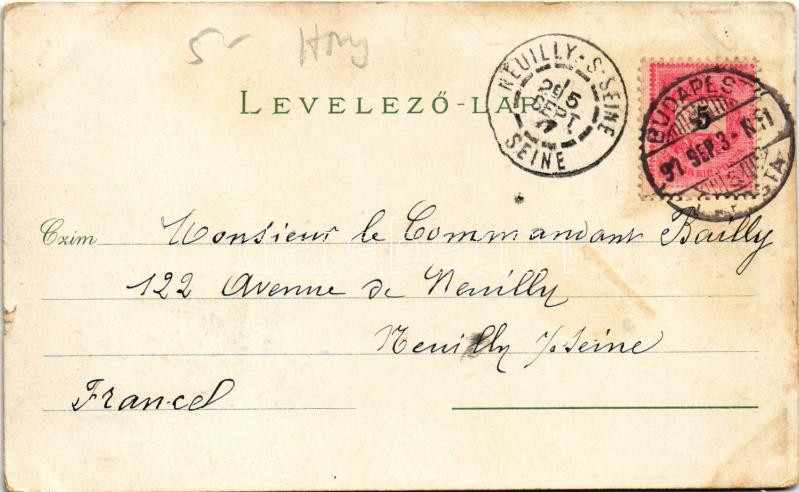 5- Hong
LEVELEZŐ-LAP
NEUILLY-S-SEINE
5
SEPT
SEINE
BUDAPEST
5
97. SEP. 3
Czim Monsieur le Commandant Bailly
122 Avenue de Neuilly
Neuilly s/Seine
France